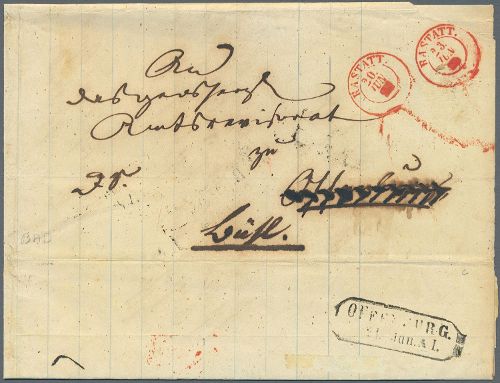 RASTATT.
20.
JUN
RASTATT.
23.
JUN
An
das
Amtsrevisorat
zu
Bühl.
OFFENBURG.
Jun. A I.
BAD